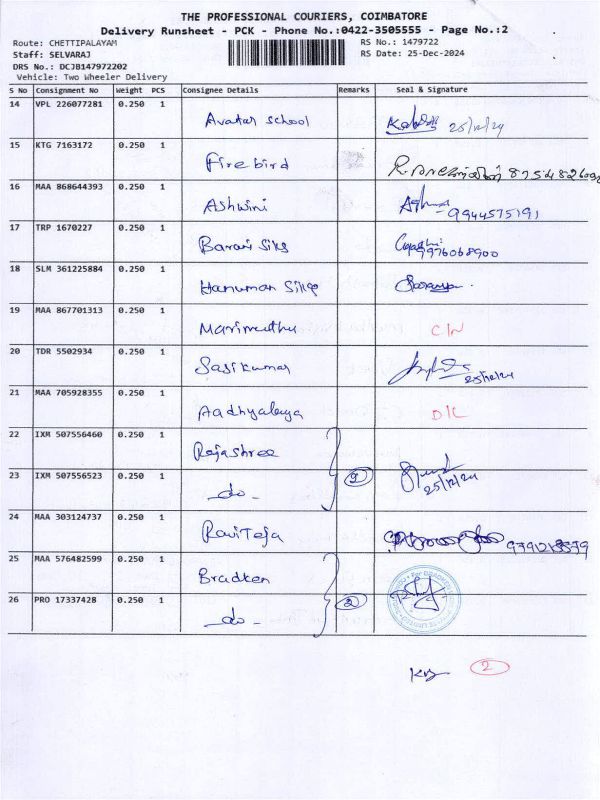 THE PROFESSIONAL COURIERS, COIMBATORE
Delivery Runsheet - PCK - Phone No.:0422-3505555 - Page No.:2
Route: CHETTIPALAYAM RS No.: 1479722
Staff: SELVARAJ RS Date: 25-Dec-2024
DRS No.: DCJB147972202
Vehicle: Two Wheeler Delivery
S No Consignment No Weight PCS Consignee Details Remarks Seal & Signature
14 VPL 226077281 0.250 1 Avatar school 25/12/24
15 KTG 7163172 0.250 1 Fire bird
16 MAA 868644393 0.250 1 Ashwini 9944575191
17 TRP 1670227 0.250 1 Barani Silks 9976068900
18 SLM 361225884 0.250 1 Hanuman
19 MAA 867701313 0.250 1 Marimuthu
20 TDR 5502934 0.250 1 Sasikumar 25/12/24
21 MAA 705928355 0.250 1 D/L
22 IXM 507556460 0.250 1 Rajashree
23 IXM 507556523 0.250 1 do - 25/12/24
24 MAA 303124737 0.250 1 Raviteja
25 MAA 576482599 0.250 1 Bradken
26 PRO 17337428 0.250 1 do - 2
2